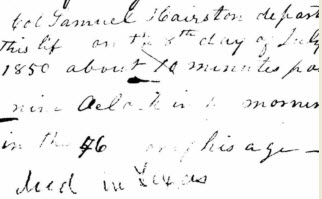 Col Samuel Hairston depart
this lif on the 8th day of July
1850 about 10 minutes pas
nine Oclock in mornin
in the 46 his age
died in Texas